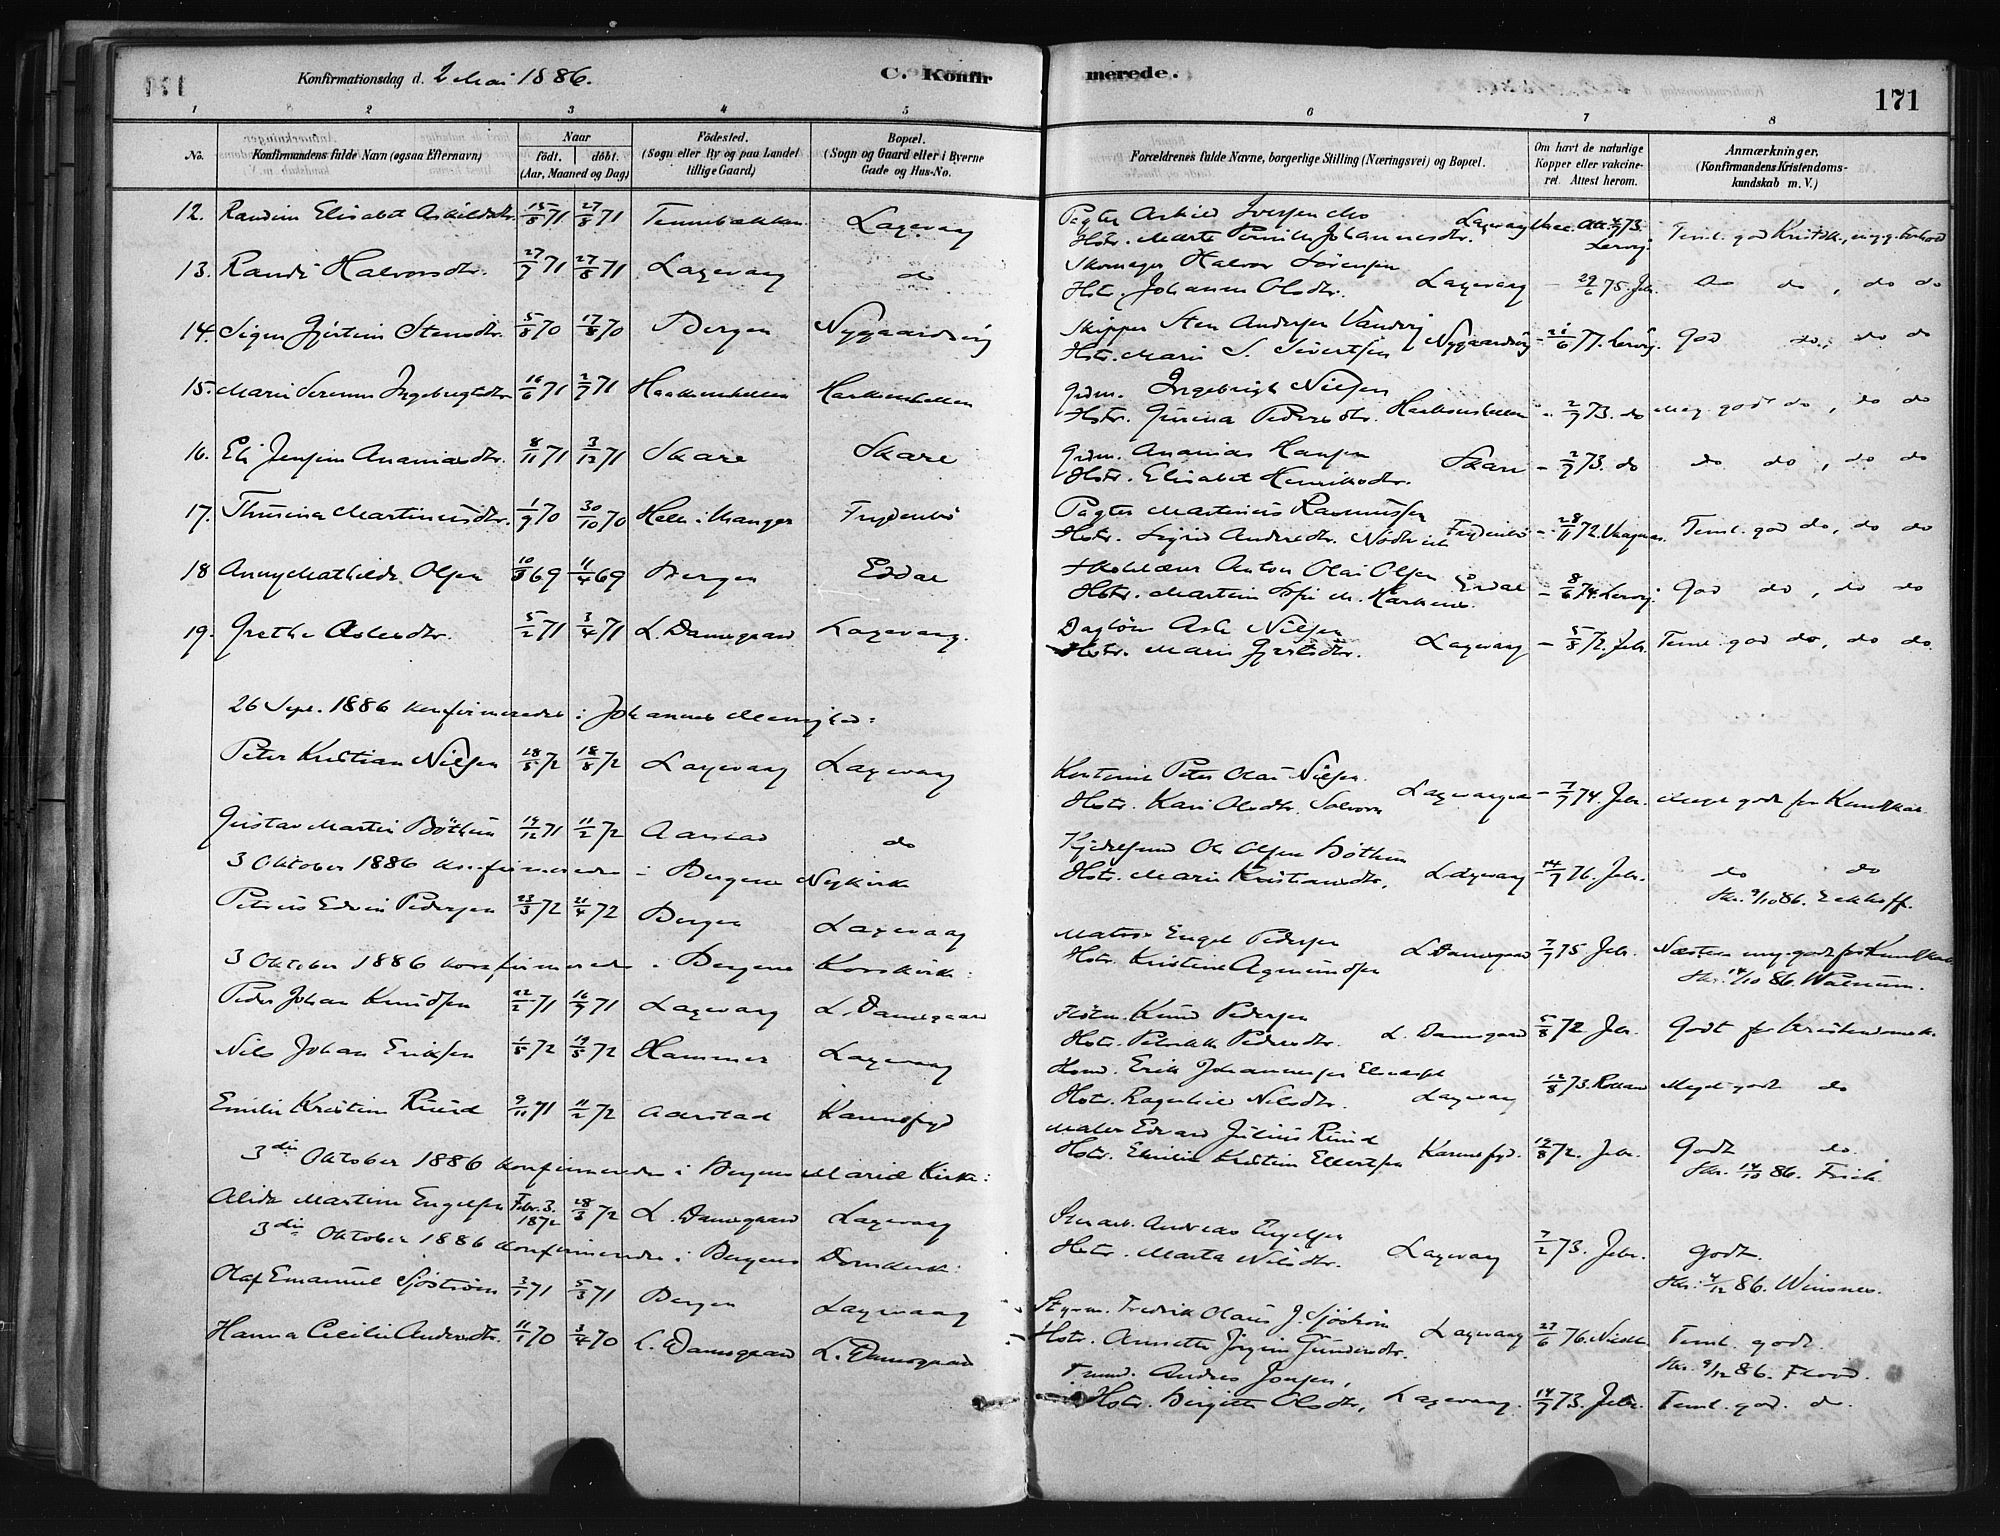 Konfirmationsdag d. 2 Mai 1886.
C. Konfir
merede.
171
1 2 3 4 5 6 7 8
No.
Konfirmandens fulde Navn (ogsaa Efternavn)
Naar
født. døbt.
(Aar, Maaned og Dag)
Fødested.
(Sogn eller By og paa Landet
tillige Gaard)
Bopæl.
(Sogn og Gaard eller i Byerne
Gade og Hus-No.
Forældrenes fulde Navne, borgerlige Stilling (Næringsvei) og Bopæl.
Om havt de naturlige
Kopper eller vakcine-
ret. Attest herom.
Anmærkninger.
(Konfirmandens Kristendoms-
kundskab m. V.)
12. Randine Elisabet Askildsdtr. 15/8 71 27/8 71 Tennebakken Laxevaag
Pagter Askild Iversen
Hstr. Marte Pernille Johannesdtr. Laxevaag
Teml. god
13. Randi Halvorsdtr. 27/7 71 27/8 71 Laxevaag do
Skomager Halvor Sørensen
Hstr. Johanne Olsdtr. Laxevaag - 29/6 75. Jebr. do do, do do
14. Signe Gjertine Stensdtr. 5/8 70 17/8 70 Bergen Nygaardsvig
Skipper Sten Andersen
Hstr. Marie S. Sivertsen Nygaardsvig - 21/6 77. God do, do do
15. Marie Serine Ingebrigtsdtr 16/6 71 2/7 71 Haakonshellen Haakonshellen
Grdm. Ingebrigt Nielsen
Hstr. Gurina Pedersdtr. Haakonshellen - 2/7 73. do Meg. godt do, do do
16. Eli Jensine Ananiasdtr. 8/11 71 3/12 71 Skare Skare
Grdm. Ananias Hansen
Hstr. Elisabet Henriksdtr. Skare - 2/7 73. do do do, do do
17. Martinusdtr. 1/9 70 30/10 70 Helle i Manger Frydenbø
Pagter Martinus Rasmussen
Hstr. Sigrid Andersdtr. Frydenbø - 28/11 72. Teml. god do, do do
18 Anny Mathilde Olsen 69 11/4 69 Bergen
Anton Olai Olsen
Hstr. Martine - 8/6 74. God do, do do
19. Grethe Aslesdtr. 5/2 71 3/4 71 L. Damsgaard Laxevaag.
Asle Nilsen
Hstr. Marie Gjertsdtr. Laxevaag - 5/8 72. Jebr. Teml. god do, do do.
26 Sept. 1886 konfirmerede i Johannes Menighed:
Peter Kristian Nilsen 18/5 72 18/8 72 Laxevaag Laxevaag
Peter Olai Nilsen
Hstr. Kari Olsdtr. - 7/9 74. Jebr. Meget godt for Kundskab
Gustav Martin Bøthun 19/12 71 11/2 72 Aarstad do
Ole Olsen Bøthun
Hstr. Marie Kristiansdtr. Laxevaag - 14/7 76. Jebr. do do
Skr. 9/10 86. Eckhoff.
3 Oktober 1886 konfirmerede i Bergens Nykirke
Petrius Edvin Pedersen 23/3 72 21/4 72 Bergen Laxevaag
Matros Engel Pedersen
Hstr. Kristine Agmundsen L. Damsgaard 7/7 75 Jebr. Næsten meg. godt for Kundskab
Skr. 14/10 86. Walnum.
3 Oktober 1886 konfirmerede i Bergens Korskirke:
Peder Johan Knudsen 22/2 71 16/7 71 Laxevaag L. Damsgaard
Knud Pedersen
Hstr. Pedersdtr. L. Damsgaard 5/8 72 Jebr. Godt for Kristendomsk.
Nils Johan Eriksen 1/5 72 19/5 72 Hammer Laxevaag
Erik Johannessen
Hstr. Ragnhild Nilsdtr. Laxevaag 12/8 73. Meget godt do
Emilie Kristine Ruud 9/11 71 11/2 72 Aarstad Karensfryd
Maler Edvard Julius Ruud
Hstr. Emilie Kristine Ellertsen Karensfryd. 19/8 72. Jebr. Godt do.
Skr. 14/10 86. Frich.
3die Oktober 1886 konfirmerede i Bergens Mariekirke:
Alida Martine Engelsen Febr. 3. 1872 28/3 72 L. Damsgaard Laxevaag
Andreas Engelsen
Hstr. Marta Nilsdtr. Laxevaag 7/2 73. Jebr. Godt.
Skr. 4/12 86. Wernsnes.
3die Oktober 1886 konfirmerede i Bergens Domkirke:
Olaf Emanuel Sjöström 3/1 71 5/3 71 Bergen Laxevaag
Styrm. Fredrik Olaus J. Sjöström
Hstr. Annette Jørgine Gundersdtr. Laxevaag 27/6 76. Teml. godt.
Skr. 9/12 86. Flood.
Hanna Cecilie Andersdtr. 11/1 70 3/4 70 L. Damsgaard L. Damsgaard
Andres Jonsen,
Hstr. Birgitte Olsdtr, Laxevaag. 14/7 73. Jebr. Teml. god. do.